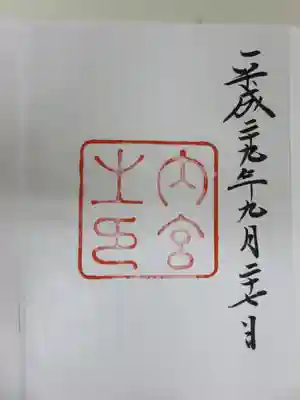 平成二十九年九月二十七日
内宮
之印